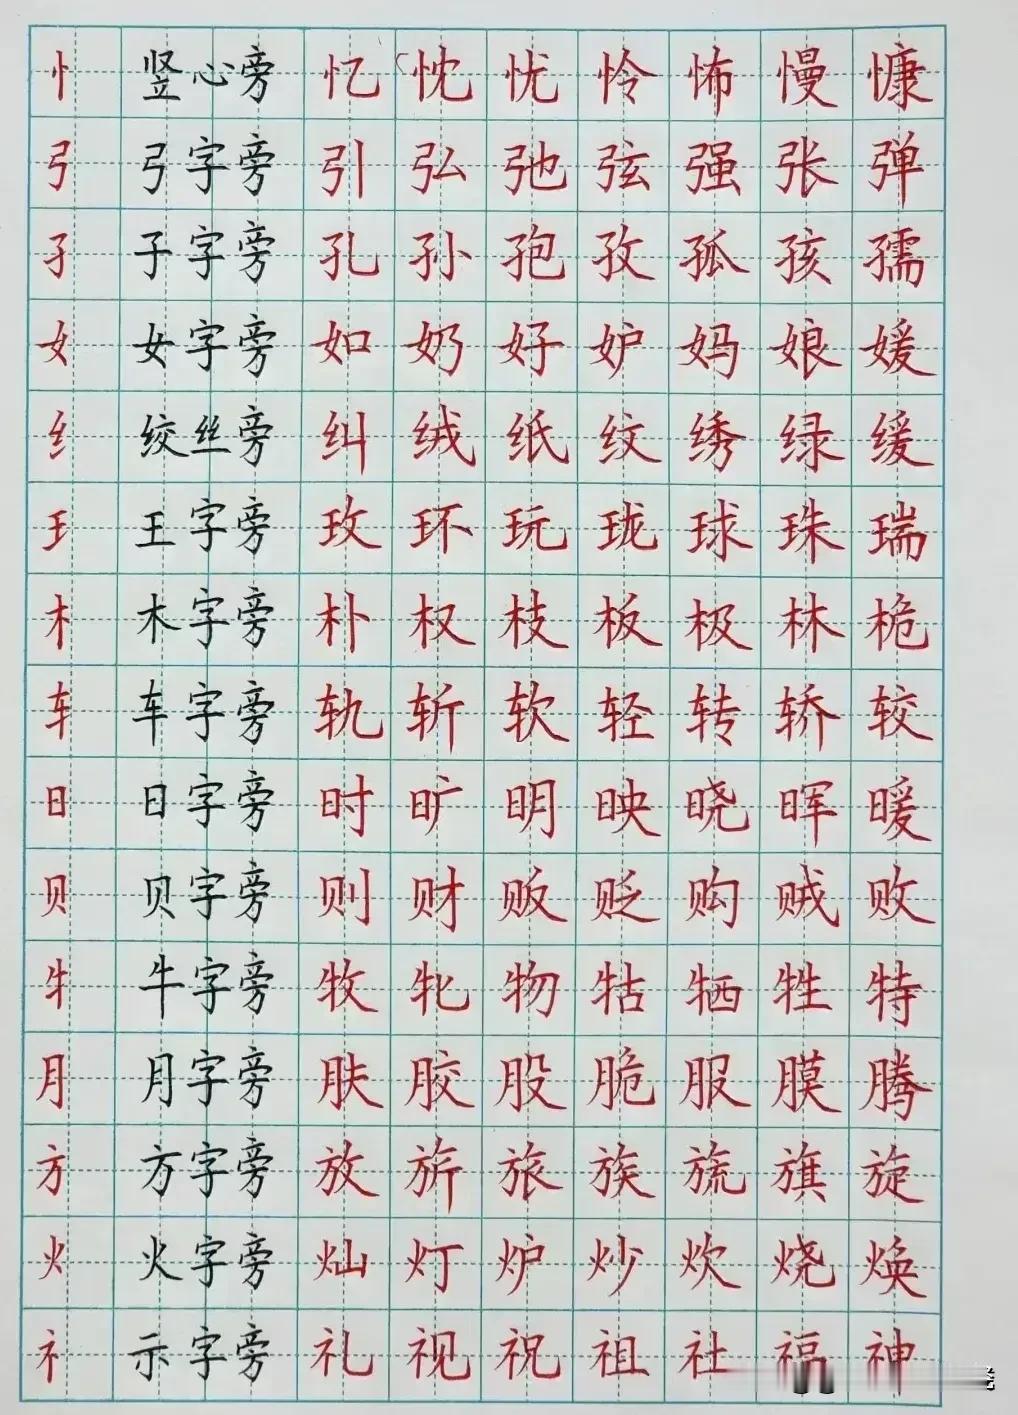 忄 竖心旁 忆 忱 忧 怜 怖 慢 慷
弓 弓字旁 引 弘 弛 弦 强 张 弹
孑 子字旁 孔 孙 孢 孜 孤 孩 孺
女 女字旁 如 奶 好 妒 妈 娘 媛
纟 绞丝旁 纠 绒 纸 纹 绣 绿 缓
王 王字旁 玫 环 玩 珑 球 珠 瑞
木 木字旁 朴 权 枝 板 极 林 桅
车 车字旁 轨 斩 软 轻 转 轿 较
日 日字旁 时 旷 明 映 晓 晖 暖
贝 贝字旁 则 财 贩 贬 购 贼 败
牜 牛字旁 牧 牝 物 牯 牺 牲 特
月 月字旁 肤 胶 股 脆 服 膜 腾
方 方字旁 放 旂 旅 族 旒 旗 旋
火 火字旁 灿 灯 炉 炒 炊 烧 焕
礻 示字旁 礼 视 祝 祖 社 福 神